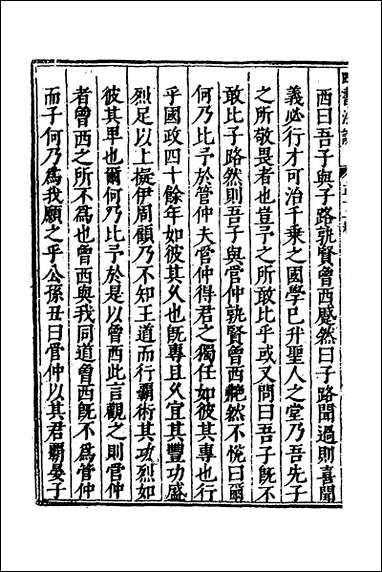 西曰吾子與子路孰賢曾西蹵然曰子路聞過則喜聞
義必行才可治千乗之國學已升聖人之堂乃吾先子
之所敬畏者也豈予之所敢比乎或又問曰吾子既不
敢比子路然則吾子與管仲孰賢曾西艴然不悅曰爾
何乃比予於管仲夫管仲得君之獨任如彼其專也行
乎國政四十餘年如彼其久也既專且久宜其豐功盛
烈足以上擬伊周顧乃不知王道而行覇術其功烈如
彼其卑也爾何乃比予於是以曾西此言觀之則管仲
者曾西之所不爲也曾西與我同道曾西既不爲管仲
而子何乃爲我願之乎公孫丑曰管仲以其君覇晏子